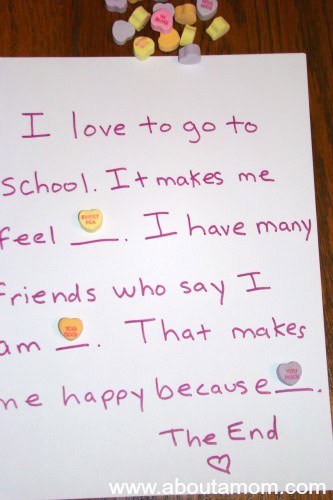 I love to go to
School. It makes me
feel SWEET PEA. I have many
friends who say I
am ___. That makes
me happy because ___.
The End
www.aboutamom.com